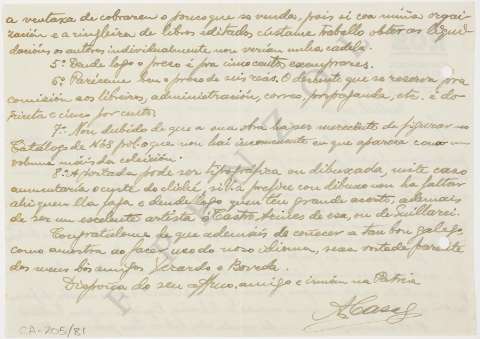 a ventaxa de cobraren o pouco que se venda, pois si coa miña orgai-
zación e a ringleira de libros editados, cústame traballo obter as liqui-
dacións os autores individualmente non verían unha cadela.
5.º Dende logo o prezo é pra cinco centos exemprares.
6.º Paréceme ben o prezo de seis reás. O desconte que se reserva pra
comisión aos libreiros, administración, correo, propaganda, etc. é do
trinta e cinco por cento.
7.º Non dubido de que a sua obra ha ser merecente de figurar no
Catálogo de NÓS pol-o que non hai inconvinte en que apareza como un
volume máis da coleición.
8.º A portada pode ser tipográfica ou dibuxada, niste caso
aumentaría o custe do cliché, si la prefire con dibuxo non ha faltar
ahi quen lla faga e dende logo quen teu grande acerto, ademais
de ser un escelente artista o Castro Arines de esa, ou de Guillarei.
Congratúlome de que ademáis de coñecer a tan bon galego
como amostra ao facer uso do noso idioma, sexa vostede pariente
dos meus bós amigos Xerardo e Borreda.
Dispoña do seu affmo. amigo e irmán na Patria
A Casal
CA-205/81